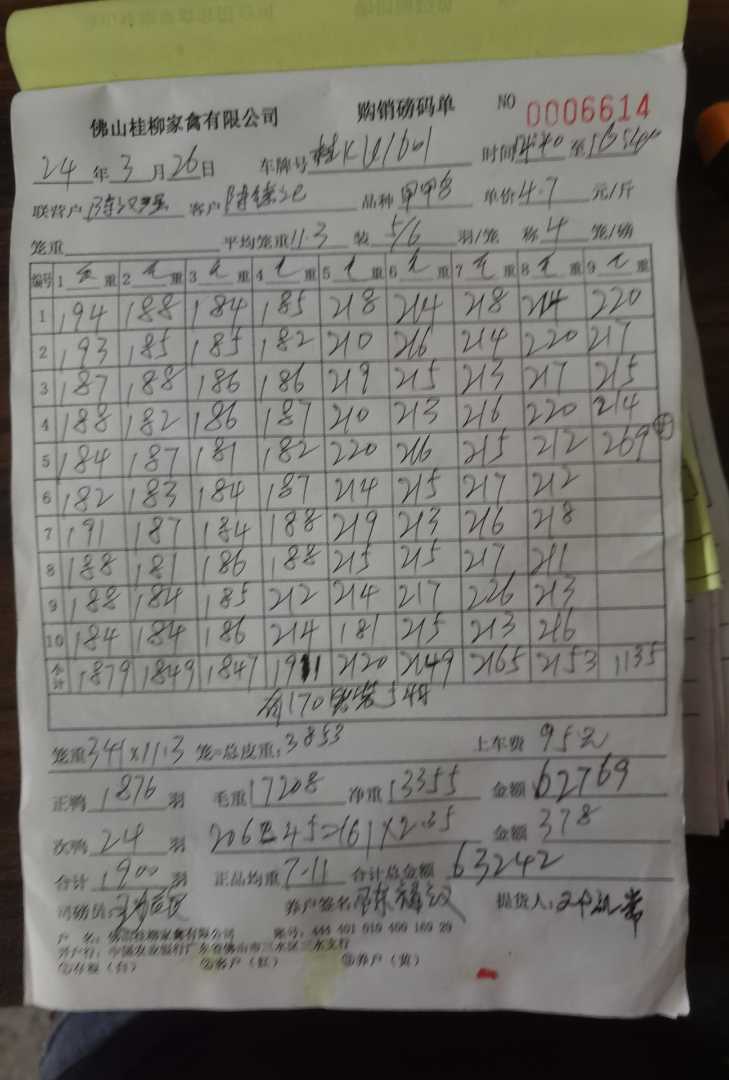 佛山桂柳家禽有限公司 购销磅码单 NO 0006614
24 年 3 月 26 日 车牌号 时间 至
联营户 客户 品种 单价 4.7 元/斤
笼重 平均笼重 11.3 装 5/6 羽/笼 称 4 笼/磅
编号 1 重 2 重 3 重 4 重 5 重 6 重 7 重 8 重 9 重
1 194 188 184 185 218 214 218 214 220
2 193 185 185 182 210 216 214 220 217
3 187 188 186 186 219 215 213 217 215
4 188 182 186 187 210 213 216 220 214
5 184 187 181 182 220 216 215 212 269
6 182 183 184 187 214 215 217 212
7 191 187 184 188 219 213 216 218
8 188 181 186 188 215 215 217 211
9 188 184 185 212 214 217 226 213
10 184 184 186 214 181 215 213 216
合计 1879 1849 1847 1911 2120 2149 2165 2153 1135
170
笼重 341×11.3 笼=总皮重: 3853 上车费 95元
正鸭 1876 羽 毛重 17208 净重 13355 金额 62769
次鸭 24 羽 206-45=161×2.35 金额 378
合计 1900 羽 正品均重 7.11 合计总金额 63242
司磅员: 养户签名 提货人:
户 名: 佛山桂柳家禽有限公司 账号: 444 401 010 400 169 20
开户行: 中国农业银行广东省佛山市三水区三水支行
①存根(白) ②客户(红) ③养户(黄)